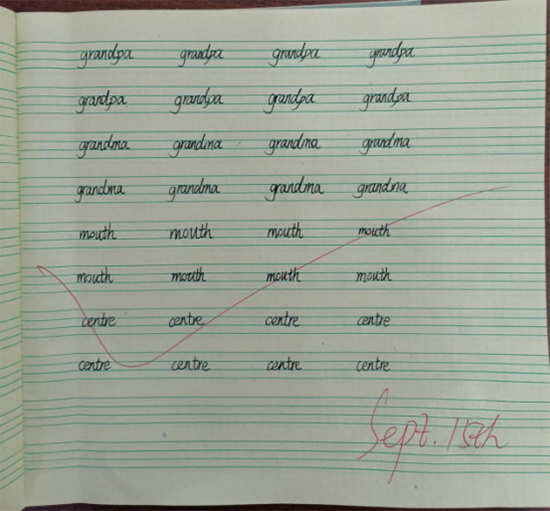 grandpa grandpa grandpa grandpa
grandpa grandpa grandpa grandpa
grandma grandma grandma grandma
grandma grandma grandma grandma
mouth mouth mouth mouth
mouth mouth mouth mouth
centre centre centre centre
centre centre centre centre
Sept. 15th